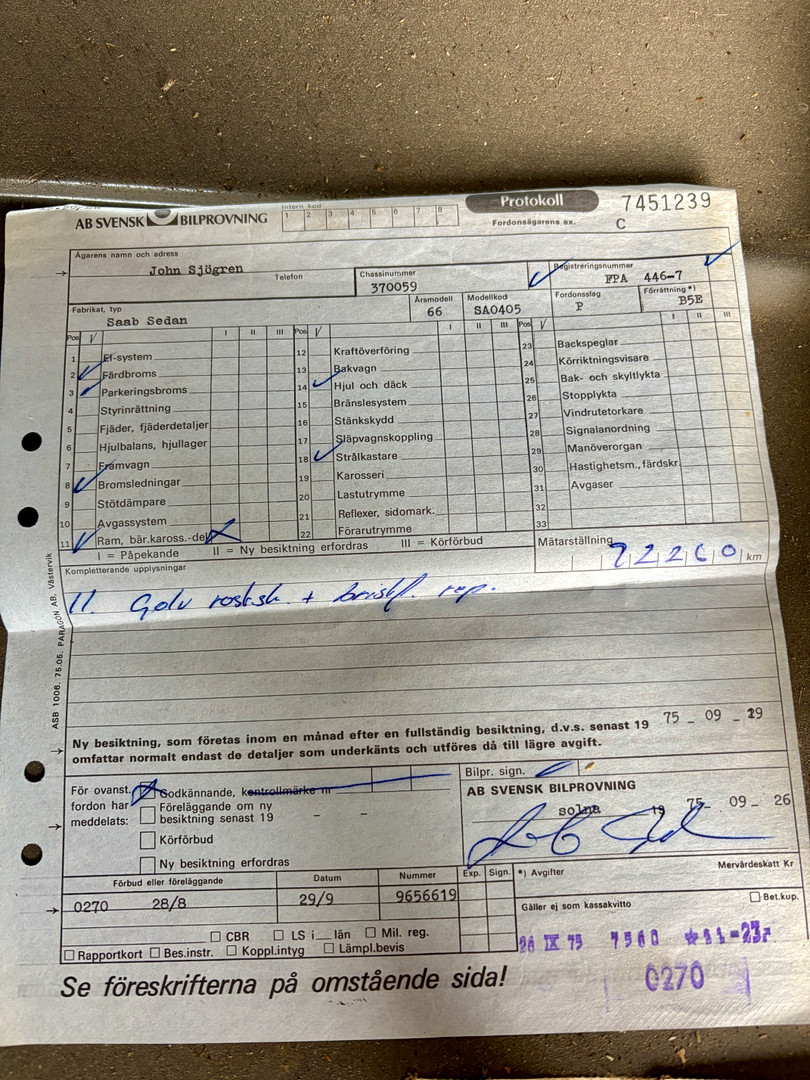 AB SVENSK BILPROVNING
Intern kod
1 2 3 4 5 6 7 8
Protokoll
Fordonsägarens ex.
7451239
C
Ägarens namn och adress
John Sjögren
Telefon
Chassinummer
370059
Registreringsnummer
FPA 446-7
Fabrikat, typ
Saab Sedan
Årsmodell
66
Modellkod
SA0405
Fordonsslag
P
Förrättning *)
B5E
Pos V I II III Pos V I II III Pos V I II III
1 El-system
2 Färdbroms
3 Parkeringsbroms
4 Styrinrättning
5 Fjäder, fjäderdetaljer
6 Hjulbalans, hjullager
7 Framvagn
8 Bromsledningar
9 Stötdämpare
10 Avgassystem
11 Ram, bär.kaross.-del
12 Kraftöverföring
13 Bakvagn
14 Hjul och däck
15 Bränslesystem
16 Stänkskydd
17 Släpvagnskoppling
18 Strålkastare
19 Karosseri
20 Lastutrymme
21 Reflexer, sidomark.
22 Förarutrymme
23 Backspeglar
24 Körriktningsvisare
25 Bak- och skyltlykta
26 Stopplykta
27 Vindrutetorkare
28 Signalanordning
29 Manöverorgan
30 Hastighetsm., färdskr
31 Avgaser
32
33
I = Påpekande II = Ny besiktning erfordras III = Körförbud
Mätarställning
km
Kompletterande upplysningar
11. Golv rostsk. + bristf. rep.
ASB 1006. 75.05. PARAGON AB, Västervik
Ny besiktning, som företas inom en månad efter en fullständig besiktning, d.v.s. senast 19 75 - 09 - 29
omfattar normalt endast de detaljer som underkänts och utföres då till lägre avgift.
För ovanst.
fordon har
meddelats:
Godkännande, kontrollmärke nr
Föreläggande om ny
besiktning senast 19 - -
Körförbud
Ny besiktning erfordras
Bilpr. sign.
AB SVENSK BILPROVNING
solna 19 75 - 09 - 26
Förbud eller föreläggande
Datum
Nummer
Exp. Sign.
0270 28/8
29/9
9656619
*) Avgifter
Mervärdeskatt Kr
Gäller ej som kassakvitto
Bet.kup.
CBR LS i län Mil. reg.
Rapportkort Bes.instr. Koppl.intyg Lämpl.bevis
26 IX 75 7560
0270
Se föreskrifterna på omstående sida!